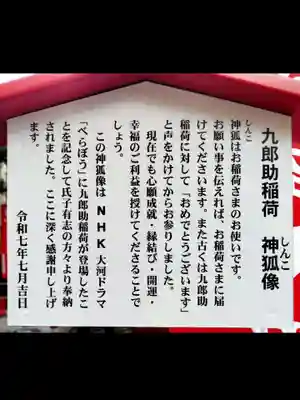 九郎助稲荷 神狐像
しんこ
しんこ
神狐はお稲荷さまのお使いです。
お願い事を伝えれば、お稲荷さまに届
けてくださいます。また古くは九郎助
稲荷に対して「おめでとうございます」
と声をかけてからお参りしました。
現在でも心願成就・縁結び・開運・
幸福のご利益を授けてくださることで
しょう。
この神狐像はNHK大河ドラマ
「べらぼう」に九郎助稲荷が登場したこ
とを記念して氏子有志の方々より奉納
されました。ここに深く感謝申し上げ
ます。
令和七年七月吉日